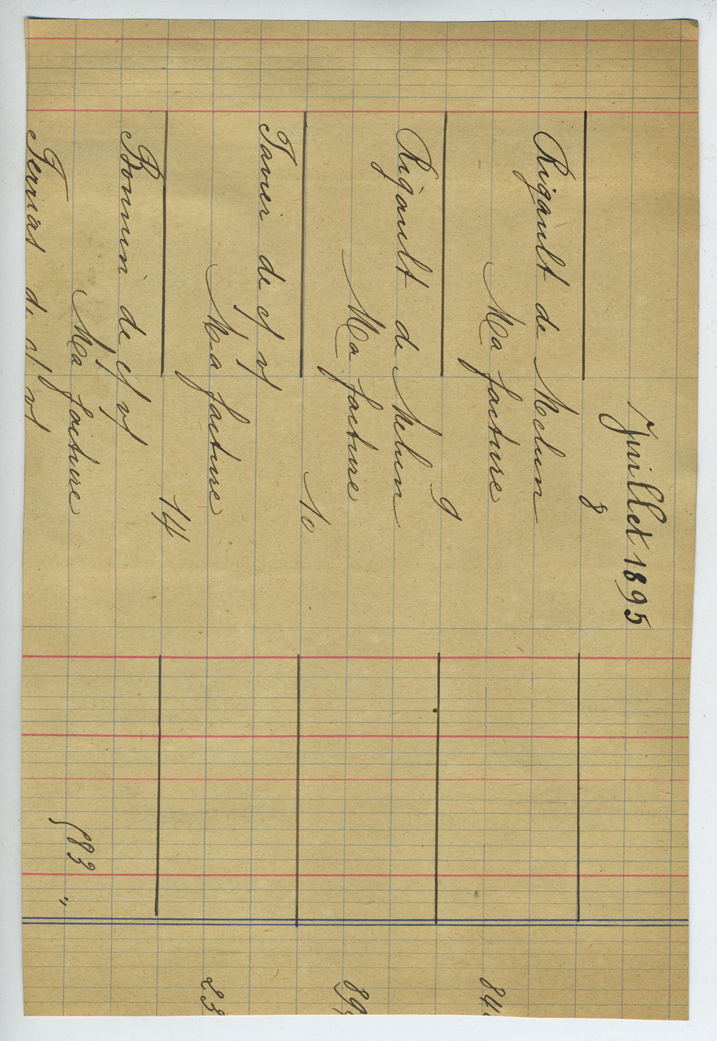 Juillet 1895
8
Rigault de Melun
Ma facture 84
9
Rigault de Melun
Ma facture 89
10
Tavier de c/ v/
Ma facture 23
14
Bonnin de c/ v/
Ma facture 583 "
de c/ v/